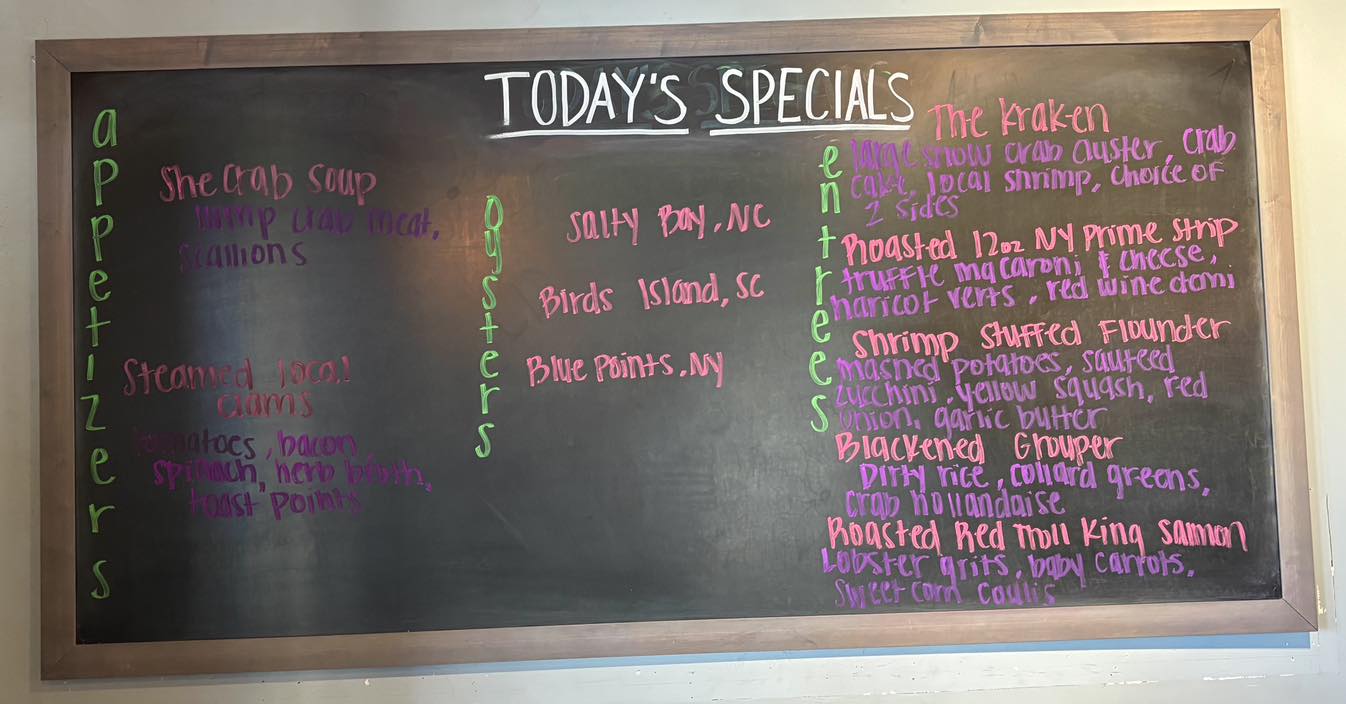 TODAY'S SPECIALS
appetizers
She Crab Soup
lump crab meat,
scallions
Steamed local
clams
tomatoes, bacon,
spinach, herb broth,
toast points
Oysters
Salty Bay, NC
Birds Island, SC
Blue Points, NY
entrees
The Kraken
large snow crab cluster, crab
cake, local shrimp, choice of
2 sides
Roasted 12oz NY Prime Strip
truffle macaroni & cheese,
haricot verts, red wine demi
Shrimp Stuffed Flounder
mashed potatoes, sauteed
zucchini, yellow squash, red
onion, garlic butter
Blackened Grouper
Dirty rice, collard greens,
crab hollandaise
Roasted Red Troll King Salmon
Lobster grits, baby carrots,
sweet corn coulis